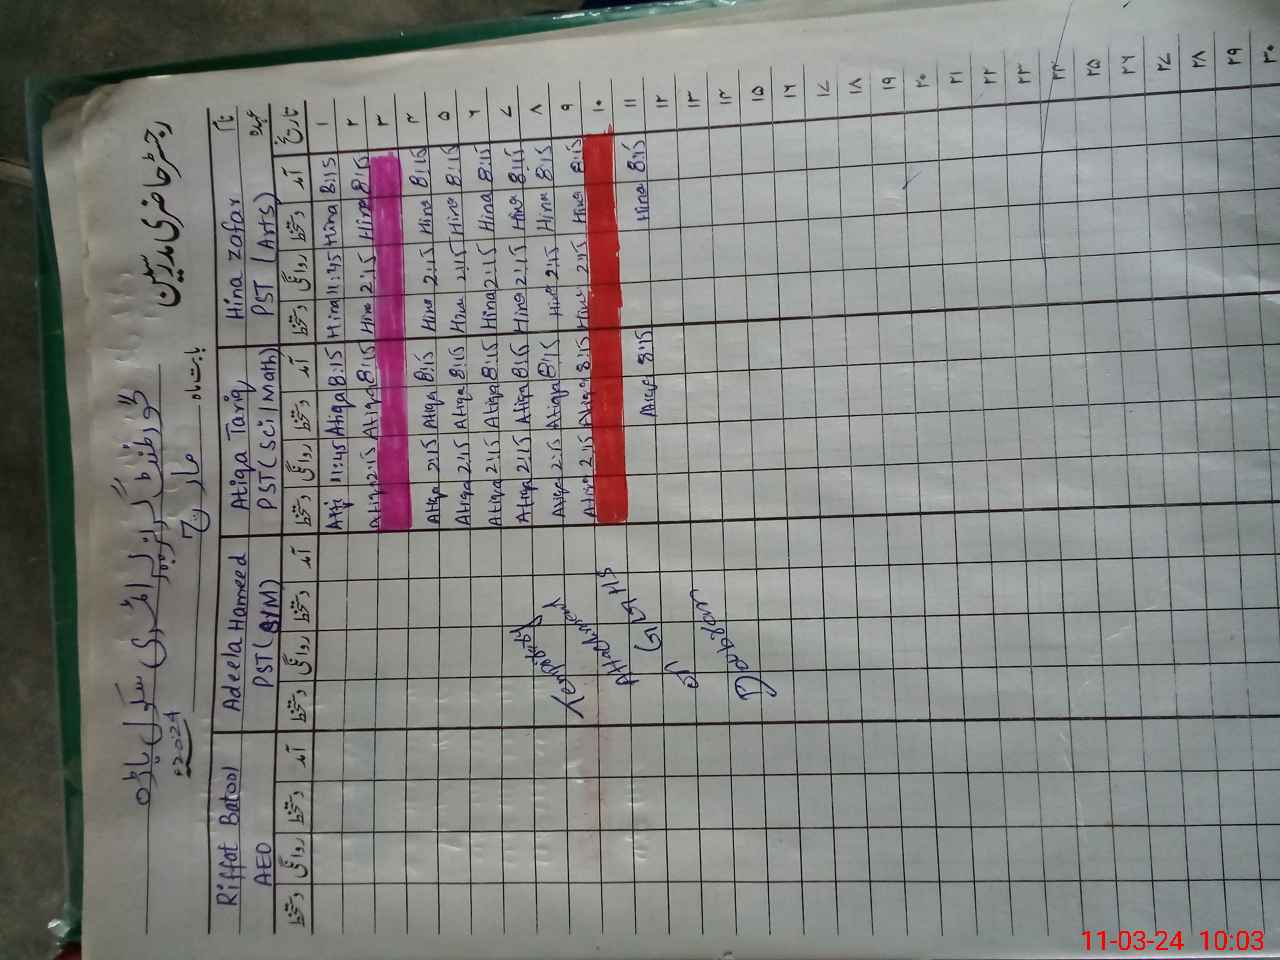 رجسٹر حاضری مدرسین
گورنمنٹ گرلز پرائمری سکول
بابت ماہ مارچ 2024ء
نام Hina Zafar Atiqa Tariq Adeela Hameed Riffat Batool
عہدہ PST (Arts) PST (Sci/Math) PST (GYM) AEO
تاریخ آمد دستخط روانگی دستخط آمد دستخط روانگی دستخط آمد دستخط روانگی دستخط آمد دستخط روانگی دستخط
۱ 8:15 Hina 11:45 Hina 8:15 Atiqa 11:45 Atiq
۲ 8:15 Hina 2:15 Hina 8:15 Atiqa 2:15 Atiqa
۳
۴ 8:15 Hina 2:15 Hina 8:15 Atiqa 2:15 Atiqa
۵ 8:15 Hina 2:15 Hina 8:15 Atiqa 2:15 Atiqa
۶ 8:15 Hina 2:15 Hina 8:15 Atiqa 2:15 Atiqa
۷ 8:15 Hina 2:15 Hina 8:15 Atiqa 2:15 Atiqa
۸ 8:15 Hina 2:15 Hina 8:15 Atiqa 2:15 Atiqa
۹ 8:15 Hina 2:15 Hina 8:15 Atiqa 2:15 Atiqa
۱۰
۱۱ 8:15 Hina 8:15 Atiqa
۱۲
۱۳
۱۴
۱۵
۱۶
۱۷
۱۸
۱۹
۲۰
۲۱
۲۲
۲۳
۲۴
۲۵
۲۶
۲۷
۲۸
۲۹
۳۰
Temporary
Attachment
GGHS
11-03-24 10:03